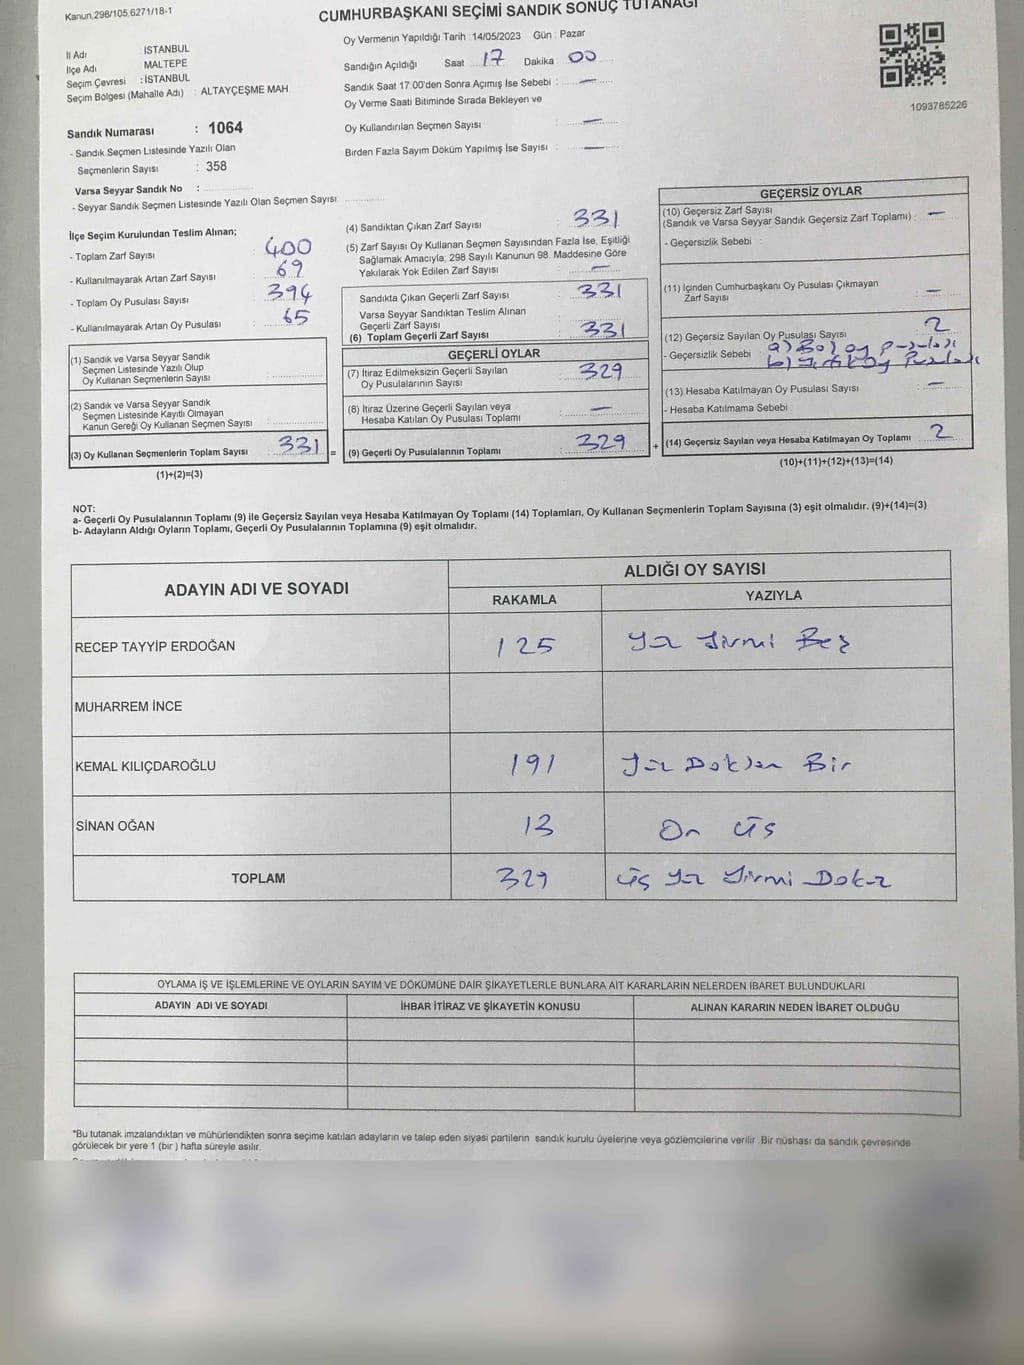 Kanun,298/105,6271/18-1
CUMHURBAŞKANI SEÇİMİ SANDIK SONUÇ TUTANAĞI
İl Adı İSTANBUL
İlçe Adı MALTEPE
Seçim Çevresi : İSTANBUL
Seçim Bölgesi (Mahalle Adı) : ALTAYÇEŞME MAH.
Sandık Numarası : 1064
- Sandık Seçmen Listesinde Yazılı Olan
Seçmenlerin Sayısı : 358
Varsa Seyyar Sandık No :
- Seyyar Sandık Seçmen Listesinde Yazılı Olan Seçmen Sayısı
Oy Vermenin Yapıldığı Tarih : 14/05/2023 Gün : Pazar
Sandığın Açıldığı Saat 17 Dakika : 00
Sandık Saat 17:00'den Sonra Açımış İse Sebebi : —
Oy Verme Saati Bitiminde Sırada Bekleyen ve
Oy Kullandırılan Seçmen Sayısı : —
Birden Fazla Sayım Döküm Yapılmış İse Sayısı : —
1093785226
İlçe Seçim Kurulundan Teslim Alınan;
- Toplam Zarf Sayısı : 400
- Kullanılmayarak Artan Zarf Sayısı : 69
- Toplam Oy Pusulası Sayısı : 394
- Kullanılmayarak Artan Oy Pusulası : 65
(1) Sandık ve Varsa Seyyar Sandık
Seçmen Listesinde Yazılı Olup
Oy Kullanan Seçmenlerin Sayısı
(2) Sandık ve Varsa Seyyar Sandık
Seçmen Listesinde Kayıtlı Olmayan
Kanun Gereği Oy Kullanan Seçmen Sayısı
(3) Oy Kullanan Seçmenlerin Toplam Sayısı : 331 =
(1)+(2)=(3)
(4) Sandıktan Çıkan Zarf Sayısı : 331
(5) Zarf Sayısı Oy Kullanan Seçmen Sayısından Fazla İse, Eşitliği
Sağlamak Amacıyla; 298 Sayılı Kanunun 98. Maddesine Göre
Yakılarak Yok Edilen Zarf Sayısı : —
Sandıkta Çıkan Geçerli Zarf Sayısı : 331
Varsa Seyyar Sandıktan Teslim Alınan
Geçerli Zarf Sayısı
(6) Toplam Geçerli Zarf Sayısı : 331
GEÇERLİ OYLAR
(7) İtiraz Edilmeksizin Geçerli Sayılan
Oy Pusulalarının Sayısı : 329
(8) İtiraz Üzerine Geçerli Sayılan veya
Hesaba Katılan Oy Pusulası Toplamı : —
(9) Geçerli Oy Pusulalarının Toplamı : 329 +
GEÇERSİZ OYLAR
(10) Geçersiz Zarf Sayısı
(Sandık ve Varsa Seyyar Sandık Geçersiz Zarf Toplamı) : —
- Geçersizlik Sebebi :
(11) İçinden Cumhurbaşkanı Oy Pusulası Çıkmayan
Zarf Sayısı : —
(12) Geçersiz Sayılan Oy Pusulası Sayısı : 2
- Geçersizlik Sebebi : a) Boş oy pusulası
b) oy Pusulası
(13) Hesaba Katılmayan Oy Pusulası Sayısı : —
- Hesaba Katılmama Sebebi :
(14) Geçersiz Sayılan veya Hesaba Katılmayan Oy Toplamı : 2
(10)+(11)+(12)+(13)=(14)
NOT:
a- Geçerli Oy Pusulalarının Toplamı (9) ile Geçersiz Sayılan veya Hesaba Katılmayan Oy Toplamı (14) Toplamları, Oy Kullanan Seçmenlerin Toplam Sayısına (3) eşit olmalıdır. (9)+(14)=(3)
b- Adayların Aldığı Oyların Toplamı, Geçerli Oy Pusulalarının Toplamına (9) eşit olmalıdır.
ADAYIN ADI VE SOYADI
ALDIĞI OY SAYISI
RAKAMLA YAZIYLA
RECEP TAYYİP ERDOĞAN 125 Yüz Yirmi Beş
MUHARREM İNCE
KEMAL KILIÇDAROĞLU 191 Yüz Doksan Bir
SİNAN OĞAN 13 On üç
TOPLAM 329 üç Yüz Yirmi Dokuz
OYLAMA İŞ VE İŞLEMLERİNE VE OYLARIN SAYIM VE DÖKÜMÜNE DAİR ŞİKAYETLERLE BUNLARA AİT KARARLARIN NELERDEN İBARET BULUNDUKLARI
ADAYIN ADI VE SOYADI İHBAR İTİRAZ VE ŞİKAYETİN KONUSU ALINAN KARARIN NEDEN İBARET OLDUĞU
*Bu tutanak imzalandıktan ve mühürlendikten sonra seçime katılan adayların ve talep eden siyasi partilerin sandık kurulu üyelerine veya gözlemcilerine verilir. Bir nüshası da sandık çevresinde
görülecek bir yere 1 (bir ) hafta süreyle asılır.